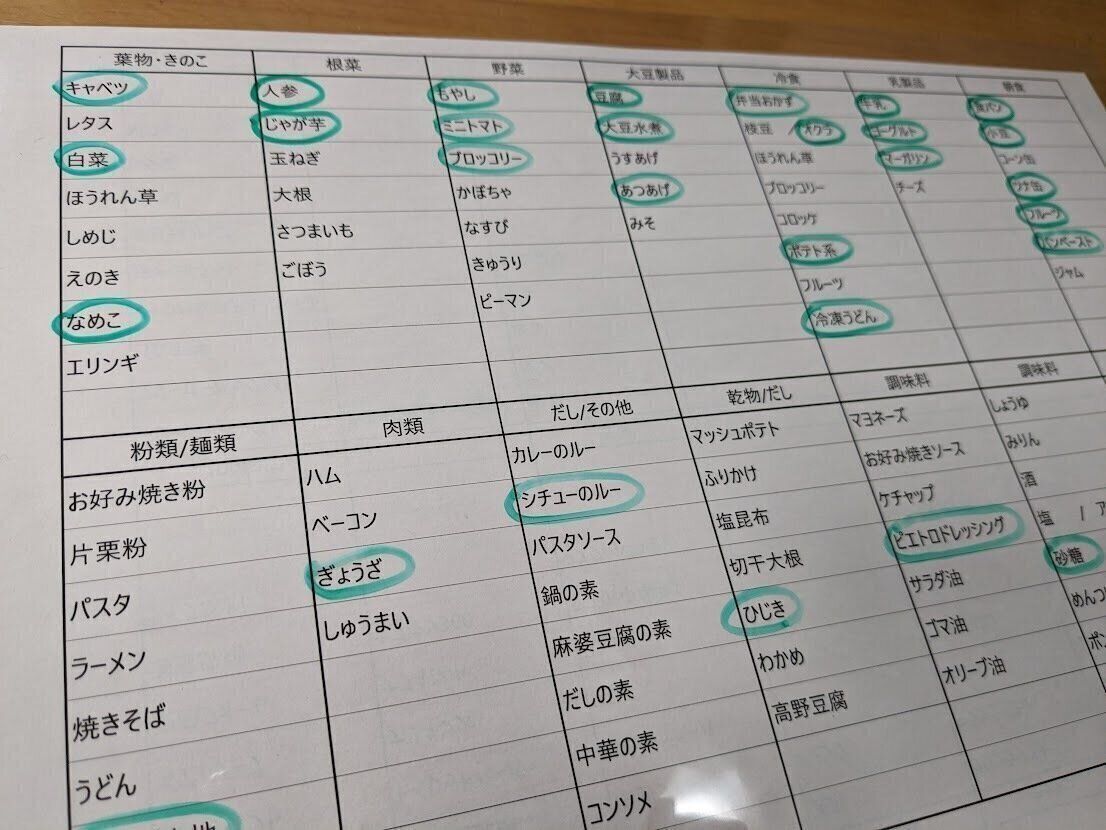 葉物・きのこ 根菜 野菜 大豆製品 冷食 乳製品 朝食
キャベツ 人参 もやし 豆腐 弁当おかず 牛乳 食パン
レタス じゃが芋 ミニトマト 大豆水煮 枝豆 / オクラ ヨーグルト 小豆
白菜 玉ねぎ ブロッコリー うすあげ ほうれん草 マーガリン コーン缶
ほうれん草 大根 かぼちゃ あつあげ ブロッコリー チーズ ツナ缶
しめじ さつまいも なすび みそ コロッケ フルーツ
えのき ごぼう きゅうり ポテト系 パンペースト
なめこ ピーマン フルーツ ジャム
エリンギ 冷凍うどん
粉類/麺類 肉類 だし/その他 乾物/だし 調味料 調味料
お好み焼き粉 ハム カレーのルー マッシュポテト マヨネーズ しょうゆ
片栗粉 ベーコン シチューのルー ふりかけ お好み焼きソース みりん
パスタ ぎょうざ パスタソース 塩昆布 ケチャップ 酒
ラーメン しゅうまい 鍋の素 切干大根 ピエトロドレッシング 塩 /
焼きそば 麻婆豆腐の素 ひじき サラダ油 砂糖
うどん だしの素 わかめ ゴマ油
中華の素 高野豆腐 オリーブ油
コンソメ